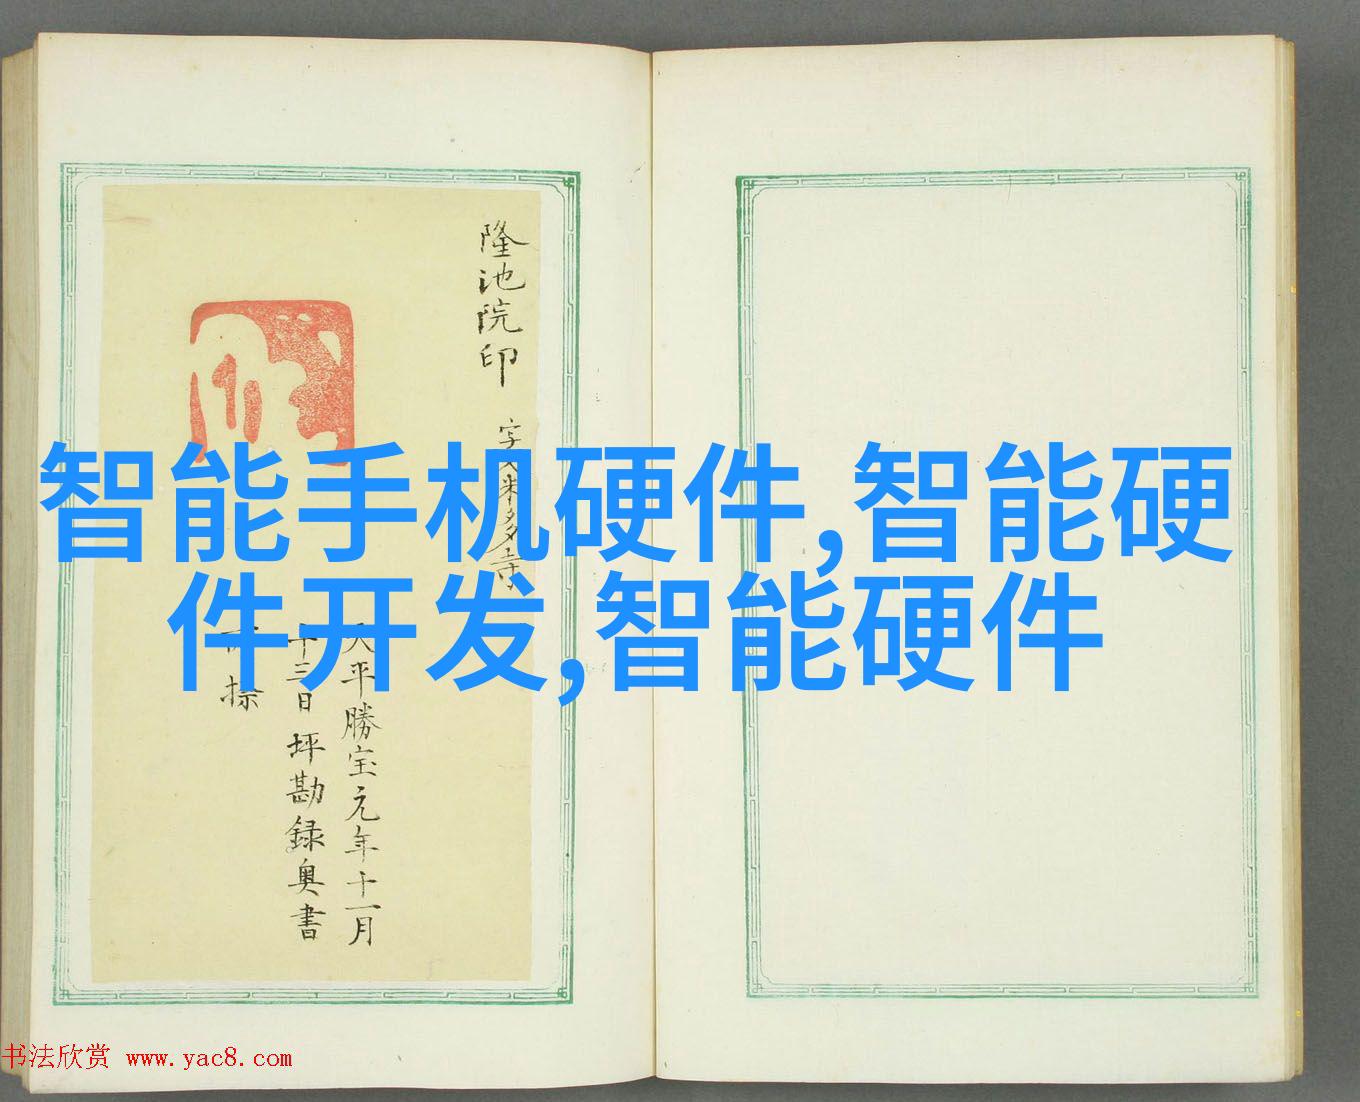 隆池院印
天平勝宝元年十一月
十三日 坪勘録奥書
智能手机硬件,智能硬
件开发,智能硬件
书法欣赏 www.yac8.com